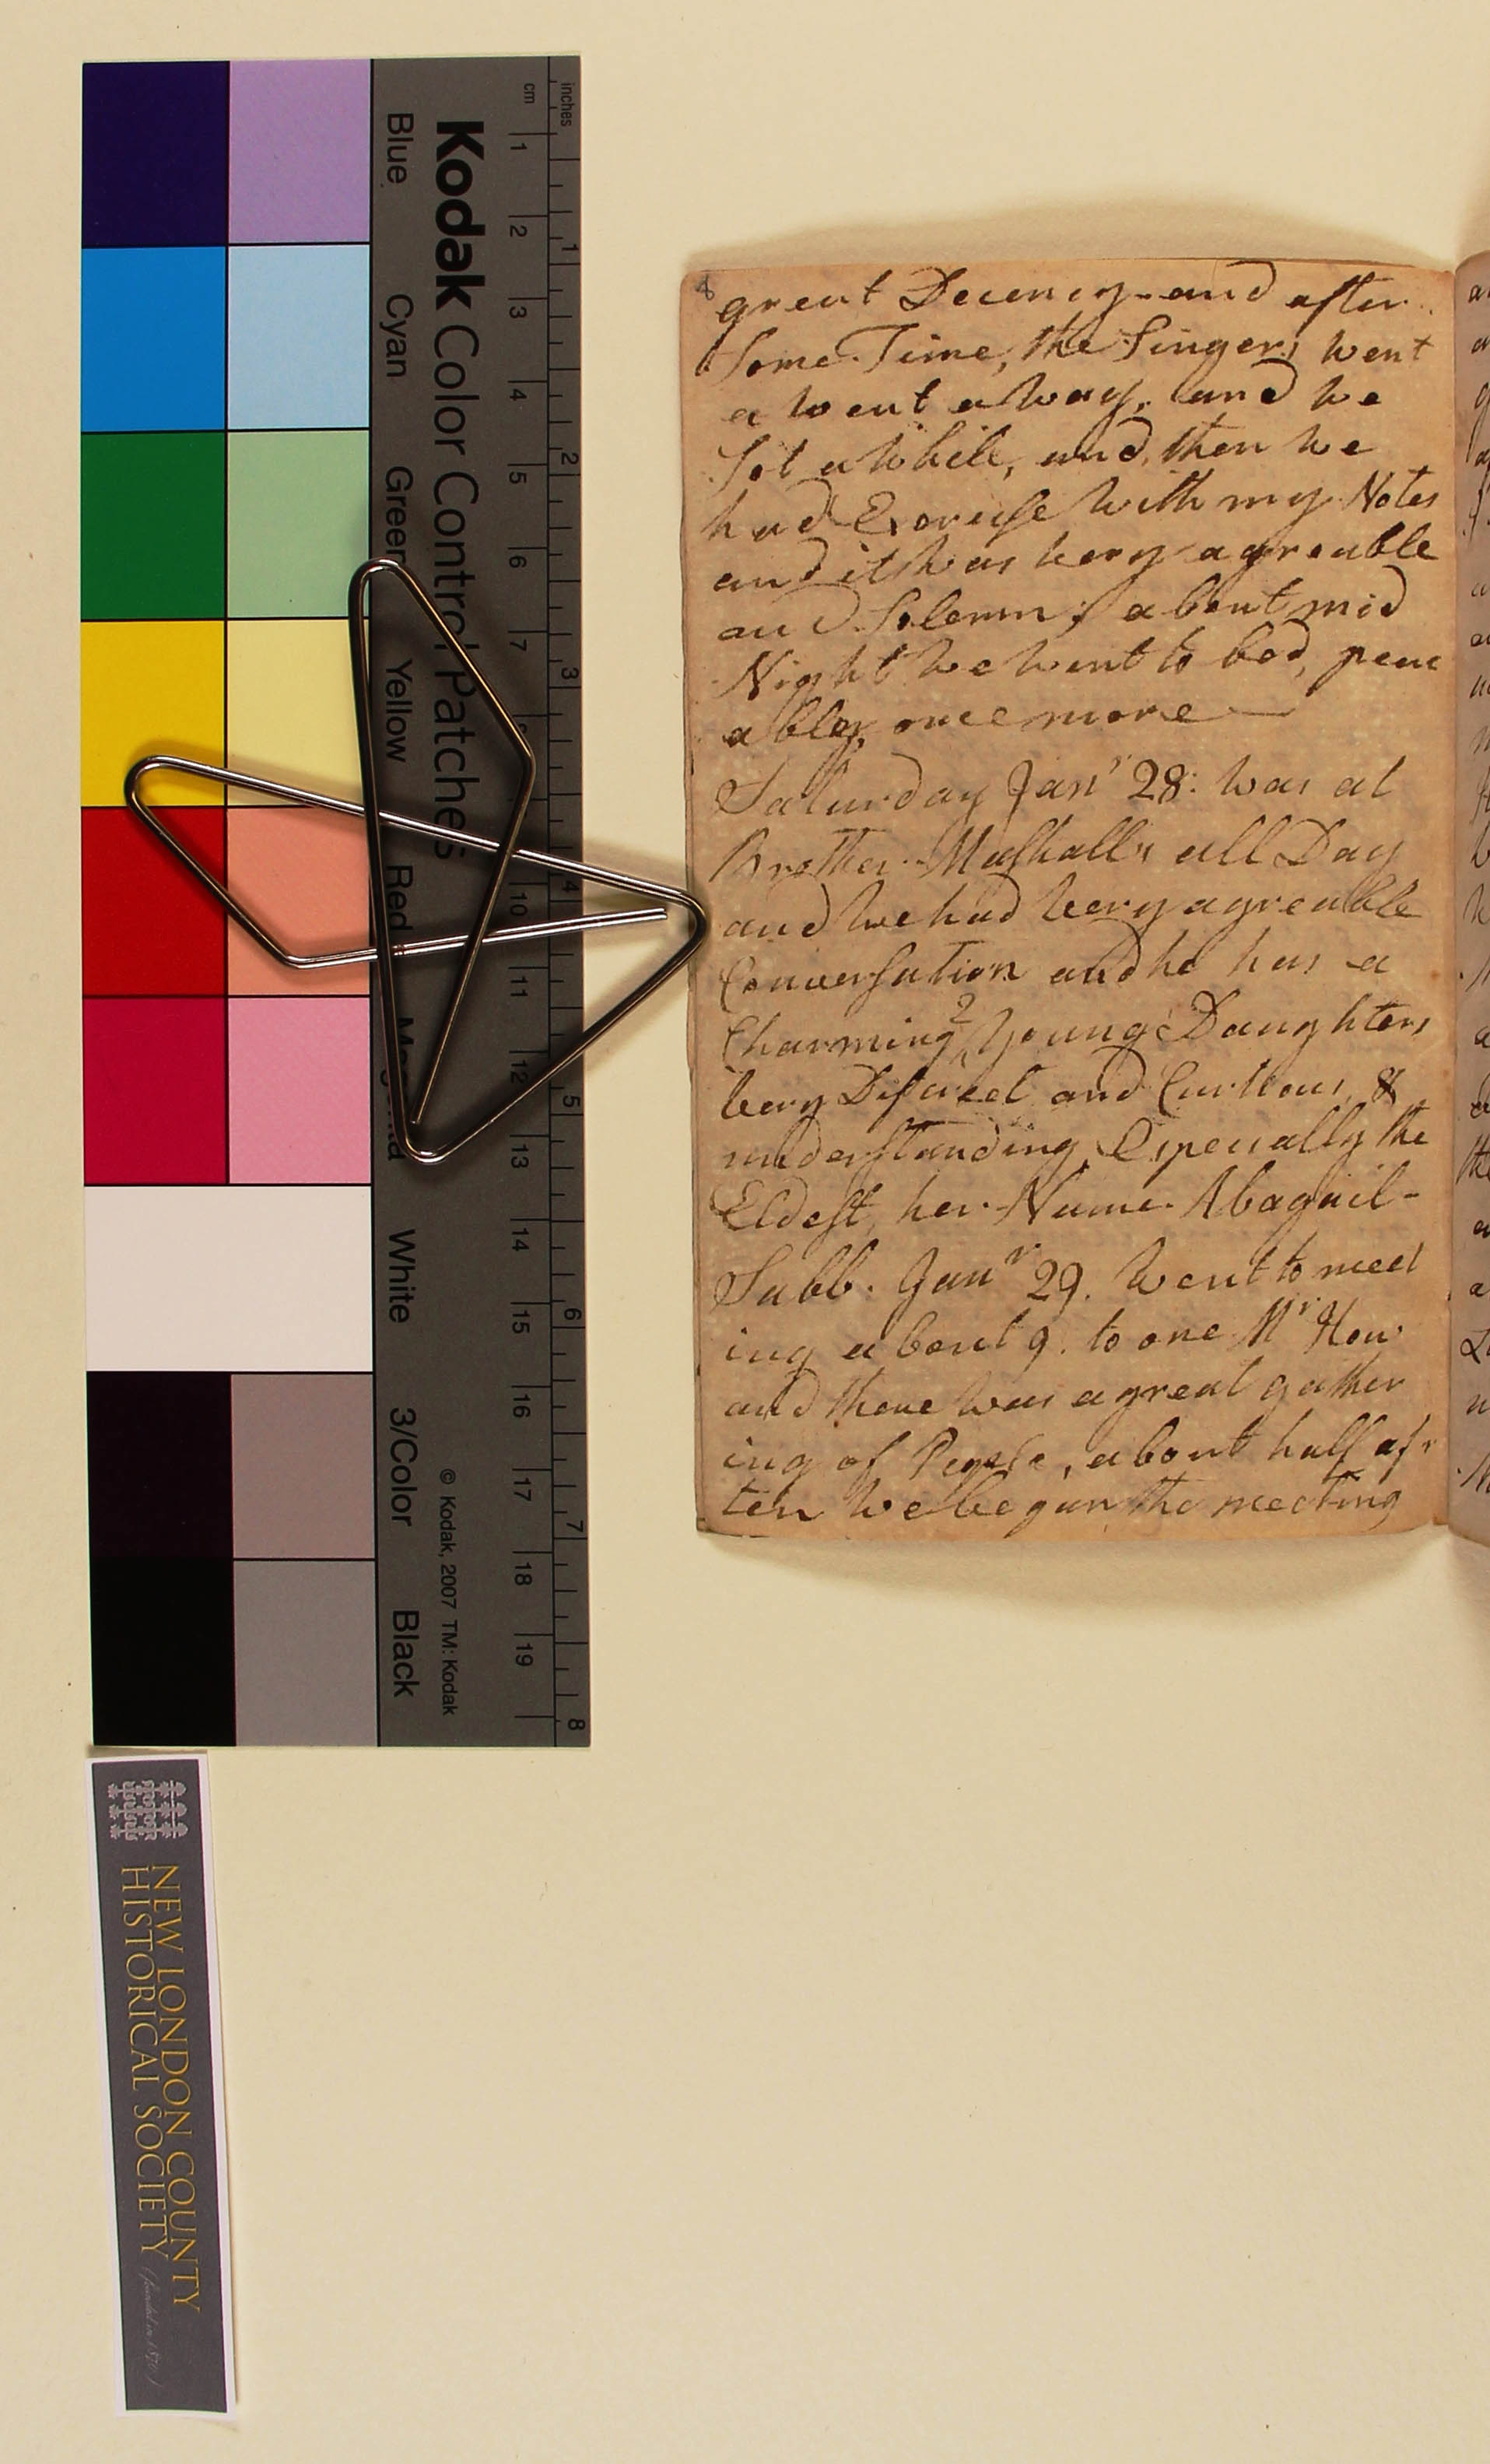 inches
cm
1 2 3 4 5 6 7 8
1 2 3 4 5 6 7 10 11 12 13 14 15 16 17 18 19
Kodak Color Control Patches
© Kodak, 2007 TM: Kodak
Blue Cyan Green Yellow Red White 3/Color Black
NEW LONDON COUNTY
HISTORICAL SOCIETY (founded in 1870)
8
great Decency - and after
Some Time, the Singers went
a went a way, and we
Sot a While, and, then we
had Exercise with my Notes
and it was very agreable
and Solemn; about mid
Night we went to bed, peac
ably, once more —
Saturday Janr 28: was at
Brother Mashalls all Day
and we had very agreable
Conversation and he has a
Charming 2 Young Daughters
very Discreet and Curtious, &
understanding, Especially the
Eldest, her Name Abagail -
Sabb. Janr 29. Went to meet
ing about 9. to one Mr How
and there was a great gather
ing of People, about half af
ten we began the meeting